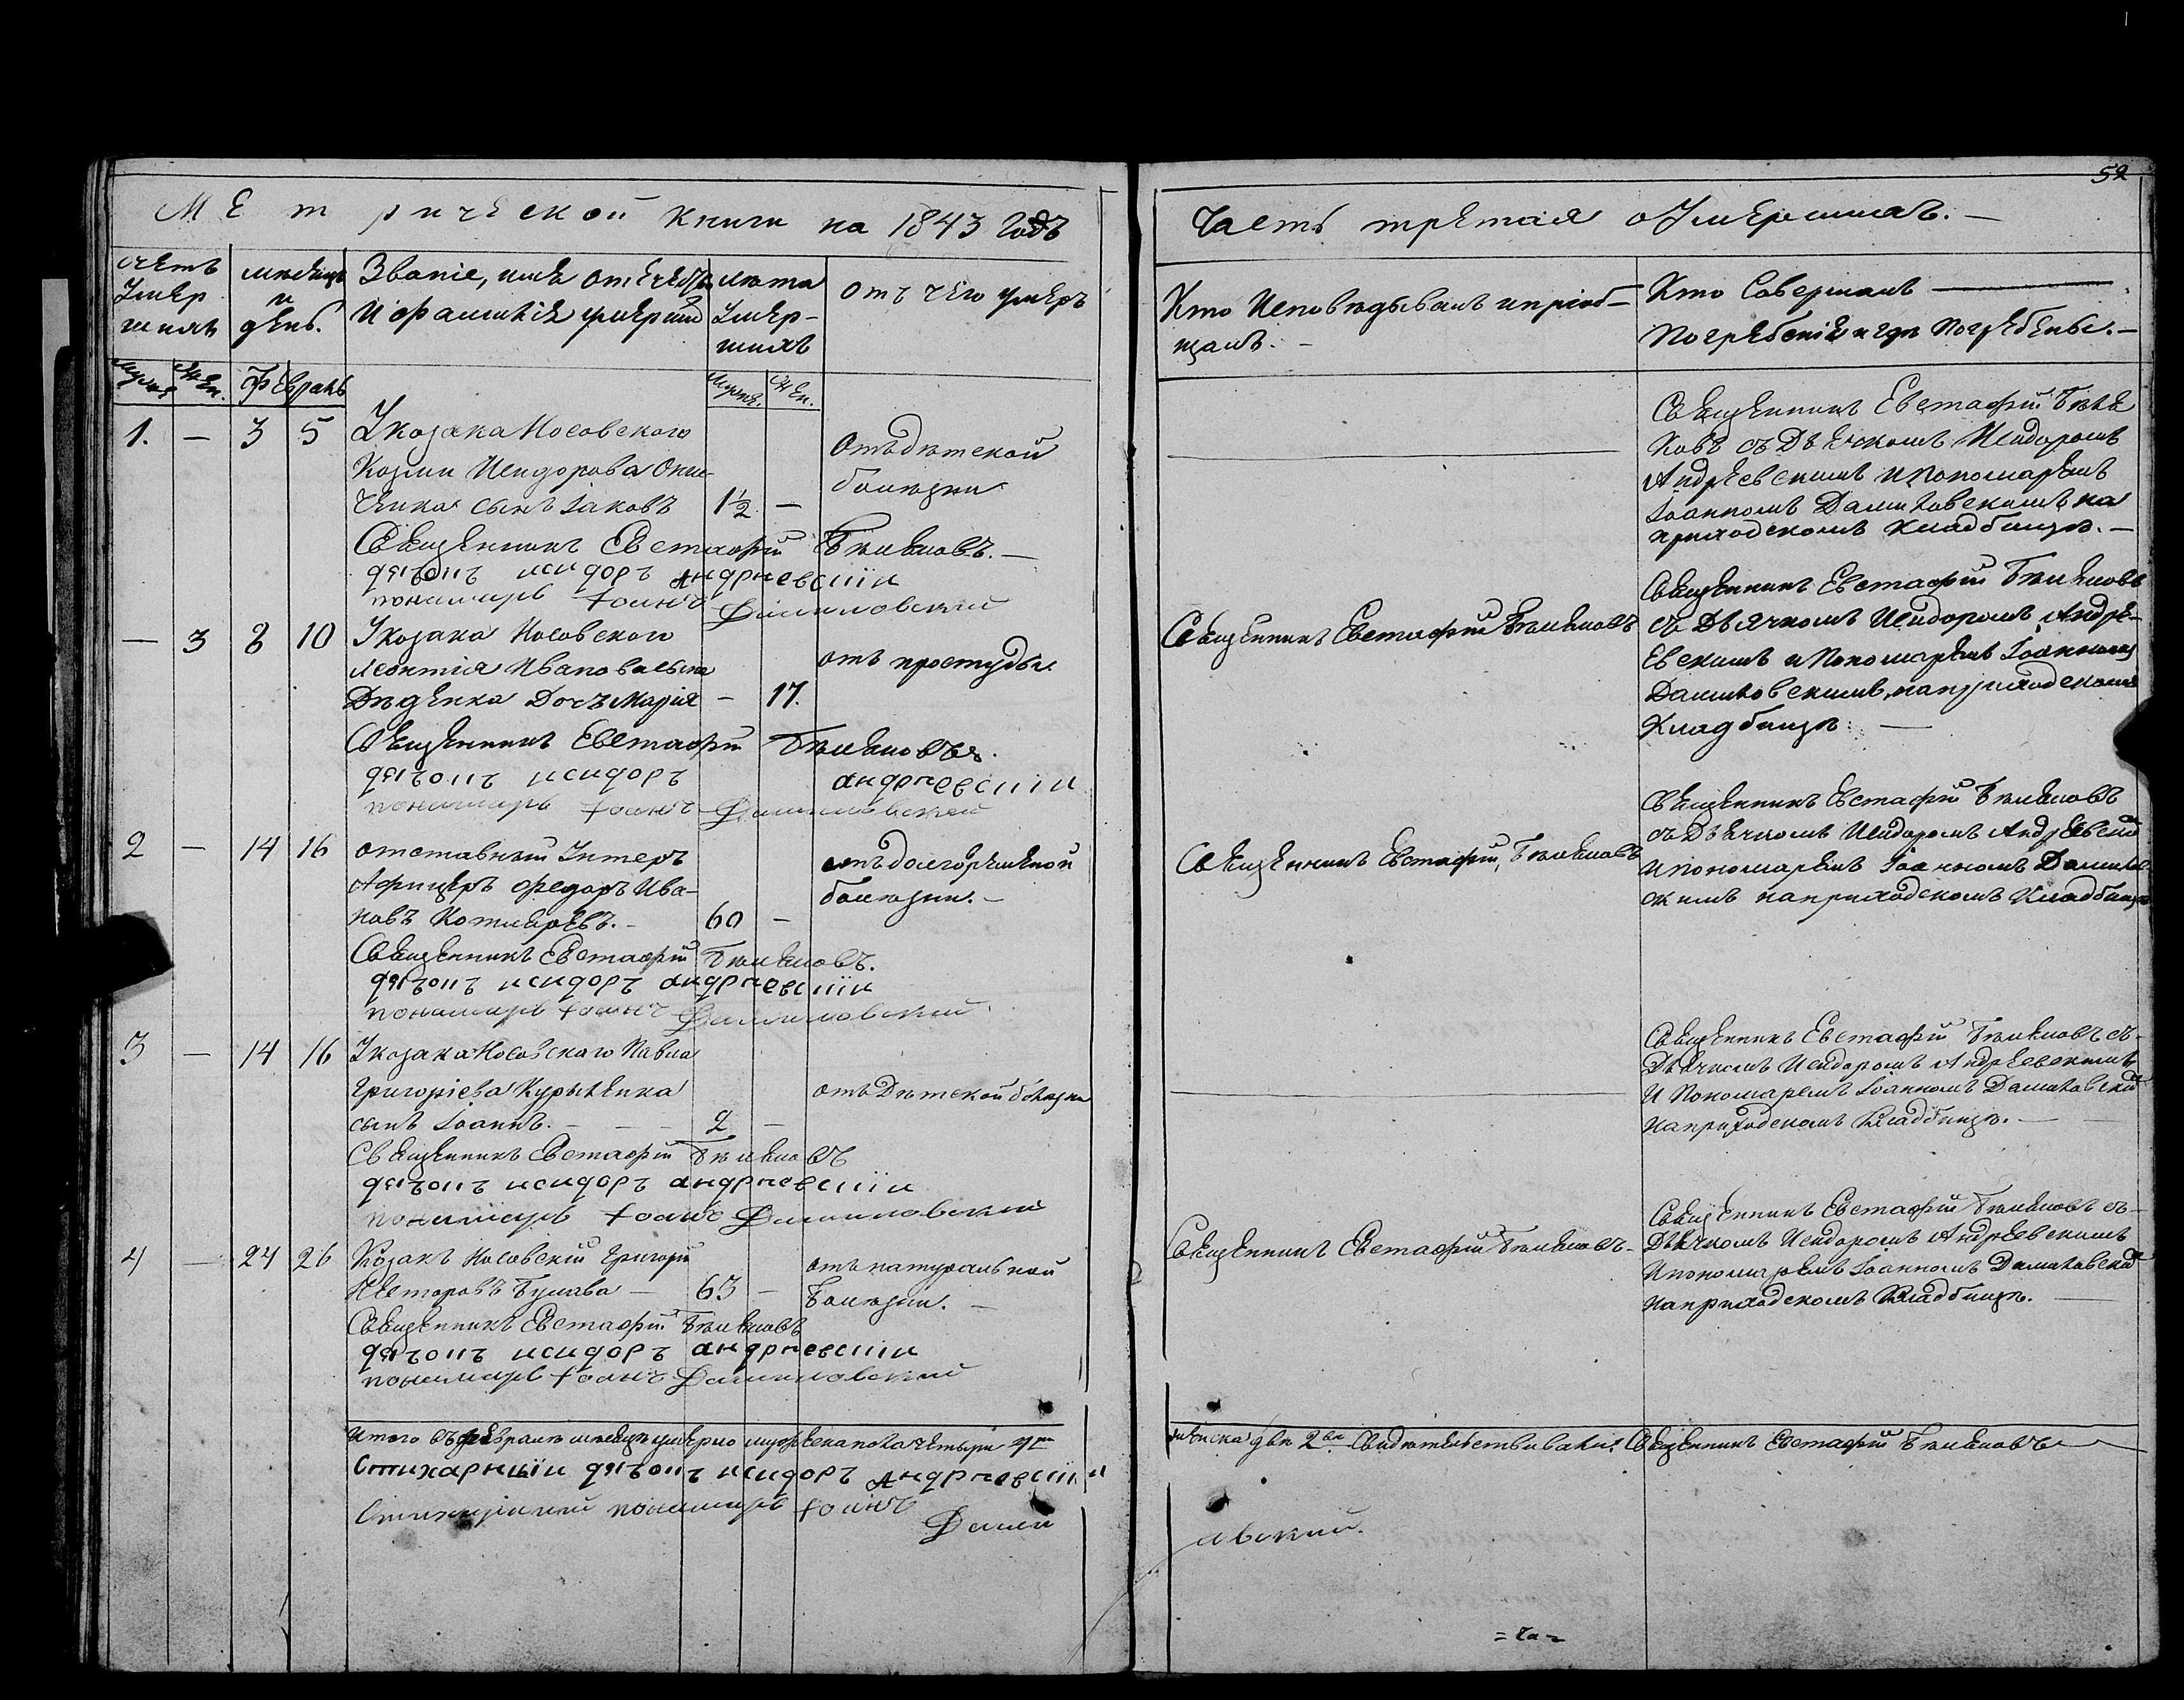 52
Метрической книги на 1843 годъ
Часть третая о Умершихъ. —
счетъ Умер шихъ
мѣсяцъ и день.
Званіе, имя отечество и фамилія умершихъ
лѣта Умер-шихъ
отъ чего умеръ
Кто Исповѣдывалъ и пріоб-
щалъ. —
Кто Совершалъ —
Погребеніе и гдѣ Погребены. —
Муж. Жен. Февраль Муже. Жен.
1. — 3 5 Укозака Носовского
Козмы Исидорова
сынъ Іаковъ 1½ —
Отъ дѣтской
болѣзни
Священникъ Евстафій Бѣле
ковъ съ Дьячкомъ Исидоромъ
Андреевскимъ и Пономаремъ
Іоанномъ на
приходскомъ Кладбищѣ. —
Священникъ Евстафій
дячокъ исидоръ андриевскій
пономаръ Іоанъ
— 3 8 10 Укозака Носовского
Леонтія Иванова сына
Дѣденка Дочъ Марія — 17.
отъ простуды
Священникъ Евстафій
Священникъ Евстафій
съ Дьячкомъ Исидоромъ Андре-
евскимъ и Пономаремъ Іоанномъ
на приходскомъ
Кладбищѣ. —
Священникъ Евстафій
дячокъ исидоръ андриевскій
пономаръ Іоанъ
2 — 14 16 отставный Унтеръ
Афицеръ Федоръ Ива-
новъ Котляревъ. — 60 —
отъ долговременной
болѣзни. —
Священникъ Евстафій
Священникъ Евстафій
съ Дьячкомъ Исидоромъ Андреевски
и пономаремъ Іоанномъ
скимъ на приходскомъ Кладбищѣ
Священникъ Евстафій
дячокъ исидоръ андриевскій
пономаръ Іоанъ
3 — 14 16 Укозака Носовскаго Павла
Григоріева Курыленка
сынъ Іоаннъ. — — — 2 —
отъ Дѣтской болѣзни
Священникъ Евстафій съ
Дьячкомъ Исидоромъ Андреевскимъ
и Пономаремъ Іоанномъ
на приходскомъ Кладбищѣ. —
Священникъ Евстафій
дячокъ исидоръ андриевскій
пономаръ Іоанъ
4 — 24 26 Козакъ Носовскій Григорій
Несторовъ Булава — 63 —
отъ натуральной
болѣзни. —
Священникъ Евстафій
Священникъ Евстафій съ
Дьячкомъ Исидоромъ Андреевскимъ
и пономаремъ Іоанномъ
на приходскомъ Кладбищѣ. —
Священникъ Евстафій
дячокъ исидоръ андриевскій
пономаръ Іоанъ
Итого въ февралѣ мѣсяцѣ умерло мужеска пола четыри 4
женска двѣ 2 Свидѣтельствовали: Священникъ Евстафій
Стихарныи дячокъ исидоръ Андриевскіи
Стихарний пономаръ Іоанъ
= ча =